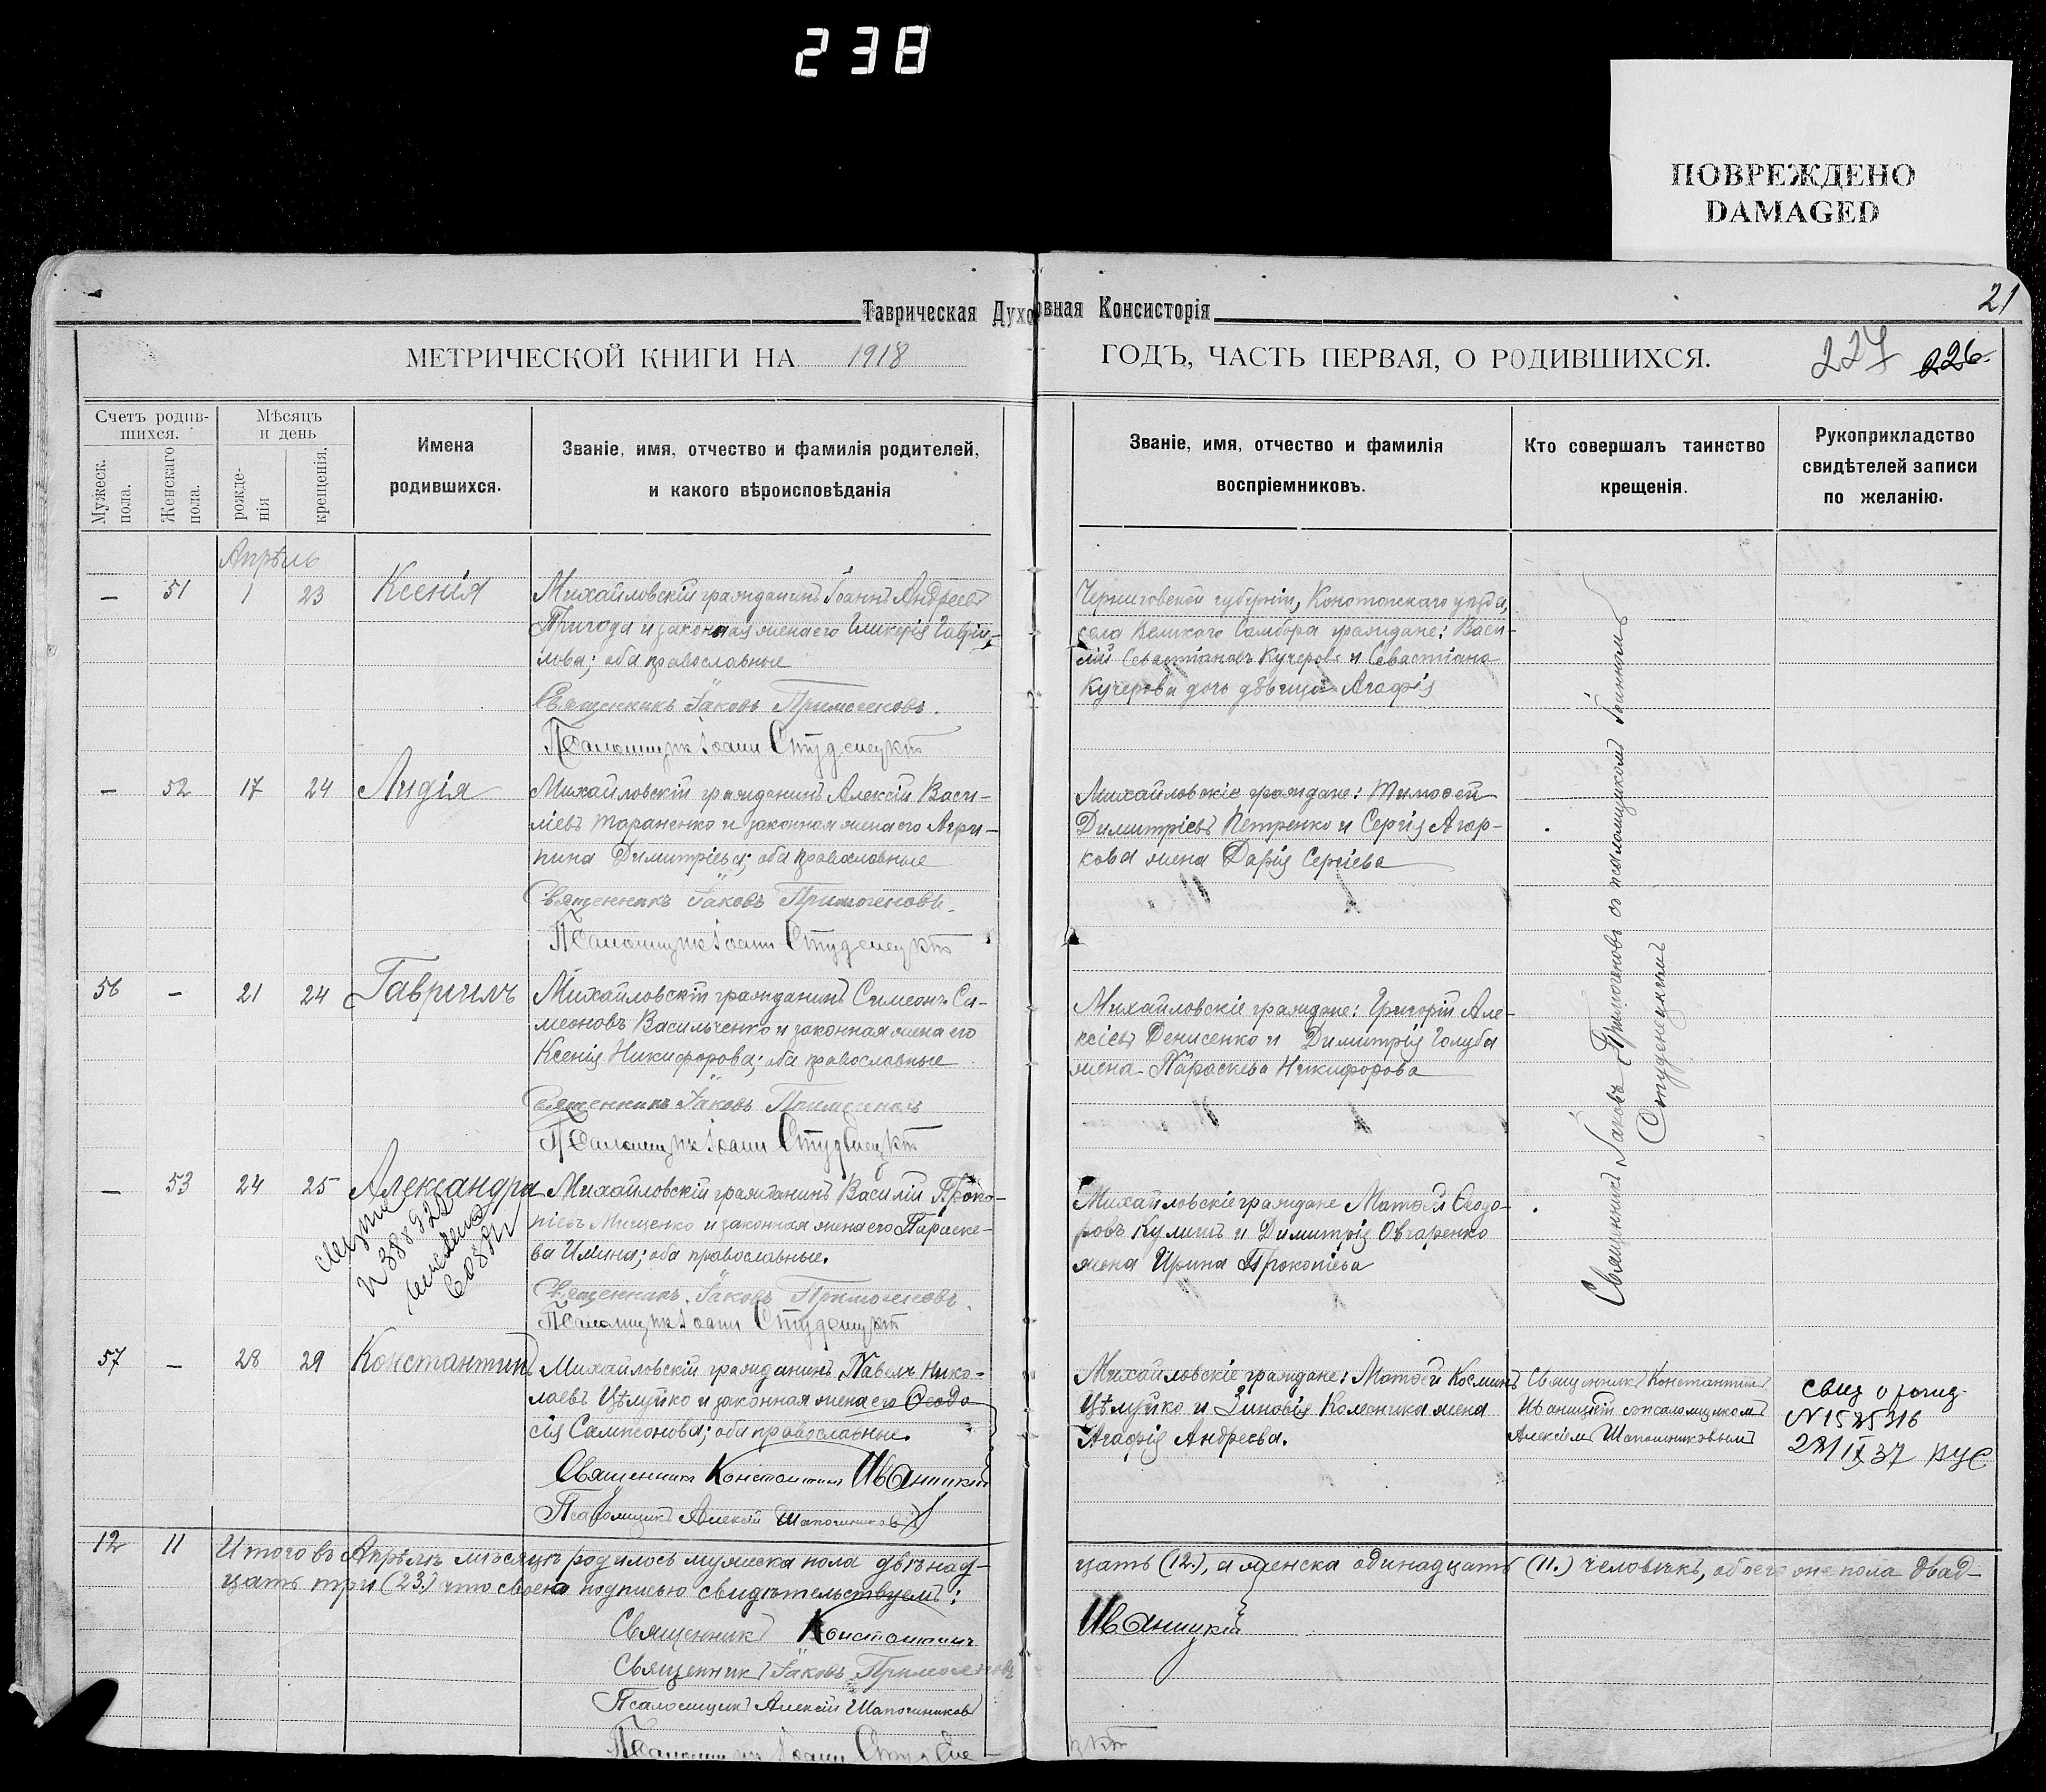 238
ПОВРЕЖДЕНО
DAMAGED
21
Таврическая Духовная Консисторія
МЕТРИЧЕСКОЙ КНИГИ НА 1918 ГОДЪ, ЧАСТЬ ПЕРВАЯ, О РОДИВШИХСЯ.
227 226
Счетъ родив-
шихся.
Мужеск.
пола.
Женскаго
пола.
Мѣсяцъ
и день
рожде-
нія
крещенія.
Имена
родившихся.
Званіе, имя, отчество и фамилія родителей,
и какого вѣроисповѣданія
Званіе, имя, отчество и фамилія
воспріемниковъ.
Кто совершалъ таинство
крещенія.
Рукоприкладство
свидѣтелей записи
по желанію.
Апрѣль
— 51 1 23 Ксенія
Михайловскій гражданинъ Іоаннъ Андреевъ
Пригода и законная жена его Гликерія Гаврі-
лова; оба православные
Священникъ Іаковъ Примогеновъ.
Псаломщикъ Іоаннъ Студенецкій
Черниговской губерніи, Конотопскаго уѣзда,
села Великого Самбора граждане: Васи-
лій Севастіановъ Кучеровъ и Севастіана
Кучерова дочь дѣвица Агафія
— 52 17 24 Лидія
Михайловскій гражданинъ Алексій Васи-
ліевъ Тараненко и законная жена его Агри-
пина Димитріева; оба православные
Священникъ Іаковъ Примогеновъ.
Псаломщикъ Іоаннъ Студенецкій
Михайловскіе граждане: Тимофей
Димитріевъ Петренко и Сергія Агар-
кова жена Дарія Сергіева
56 — 21 24 Гавріилъ
Михайловскій гражданинъ Симеонъ Си-
меоновъ Васильченко и законная жена его
Ксенія Никифорова; оба православные
Священникъ Іаковъ Примогеновъ
Псаломщикъ Іоаннъ Студенецкій
Михайловскіе граждане: Григорій Але-
ксіевъ Денисенко и Димитрія Голуба
жена Параскева Никифорова
— 53 24 25 Александра
Михайловскій гражданинъ Василій Проко-
піевъ Мищенко и законная жена его Параске-
ва Ильина; оба православные.
Священникъ Іаковъ Примогеновъ.
Псаломщикъ Іоаннъ Студенецкій
Михайловскіе граждане Матѳей Ѳеодо-
ровъ Кулишъ и Димитрія Овчаренко
жена Ирина Прокопіева
Священникъ Іаковъ Примогеновъ съ псаломщикомъ Іоанномъ
Студенецкимъ
57 — 28 29 Константинъ
Михайловскій гражданинъ Павелъ Нико-
лаевъ Цѣлуйко и законная жена его Ѳеодо-
сія Сампсонова; оба православные.
Священникъ Константинъ Иваницкій
Псаломщикъ Алексій Шапошниковъ
Михайловскіе граждане: Матѳей Косминъ
Цѣлуйко и Зиновія Колесника жена
Агафія Андреева.
Священникъ Константинъ
Иваницкій съ псаломщикомъ
Алексіемъ Шапошниковымъ
свид о рожд
12 11 Итого въ Апрѣлѣ мѣсяцѣ родилось мужеска пола двѣнад-
цать (12.), а женска одинадцать (11.) человѣкъ, обоего же пола двад-
цать три (23.) что своею подписью свидѣтельствуемъ:
Священникъ Константинъ Иваницкій
Священникъ Іаковъ Примогеновъ
Псаломщикъ Алексій Шапошниковъ
Псаломщикъ Іоаннъ Студенецкій